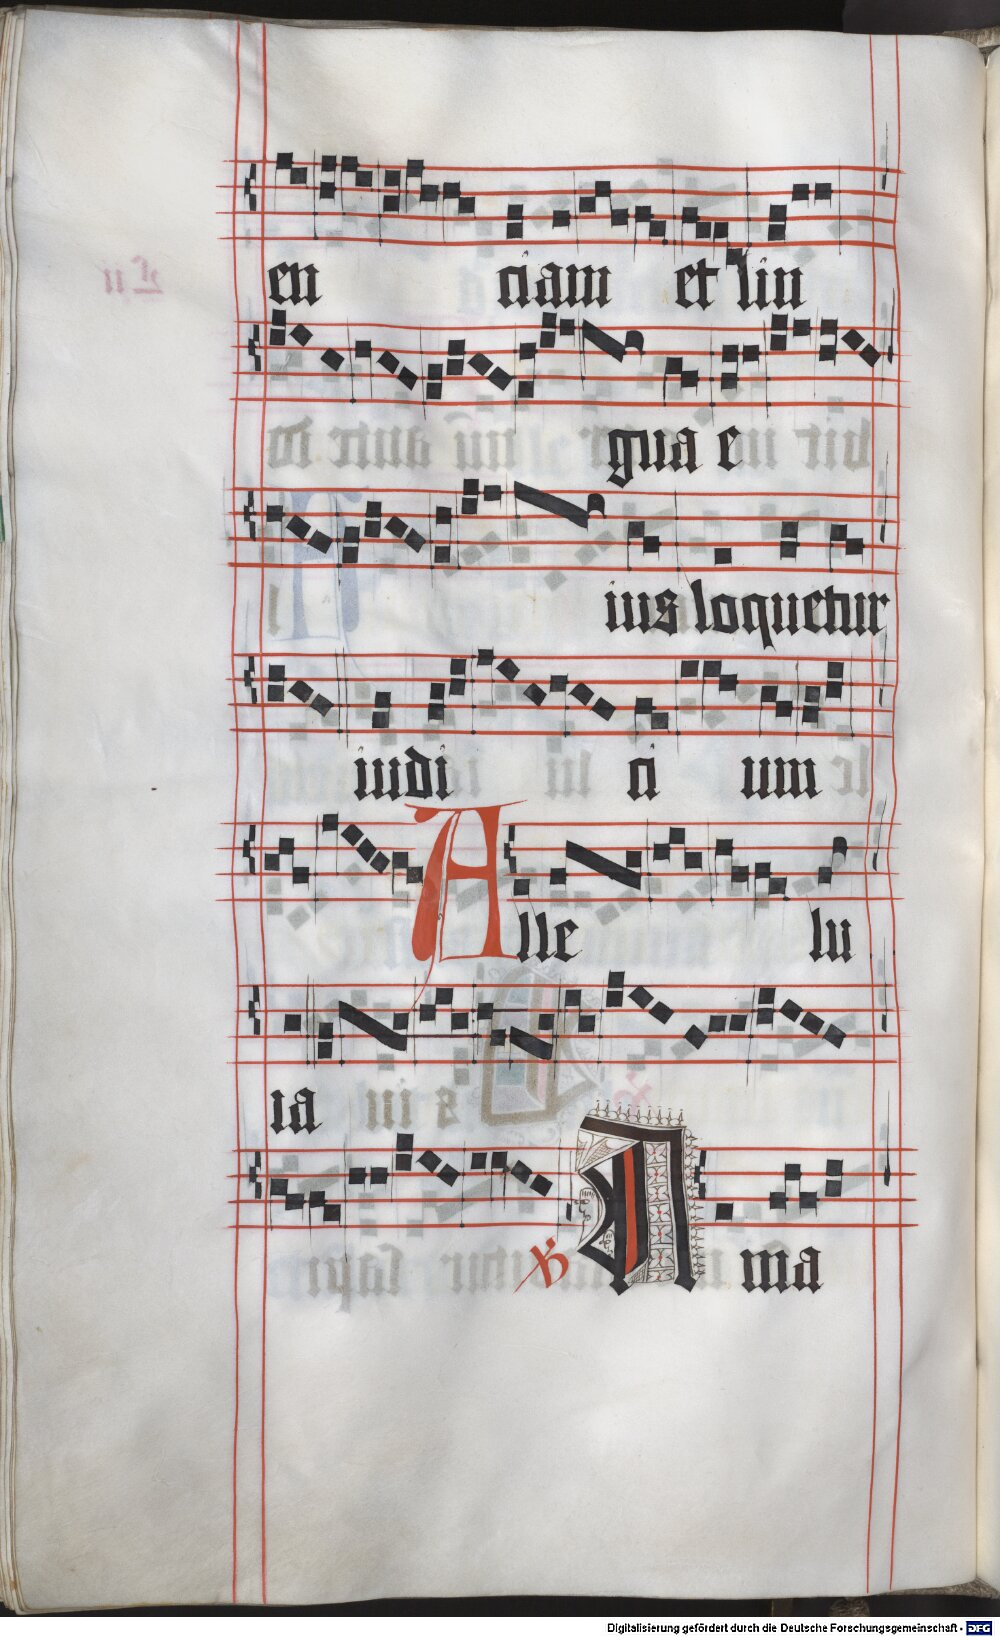 en ciam et lin
gua e
ius loquetur
iudi ci um
Alle lu
ia
℣ A ma
Digitalisierung gefördert durch die Deutsche Forschungsgemeinschaft - DFG